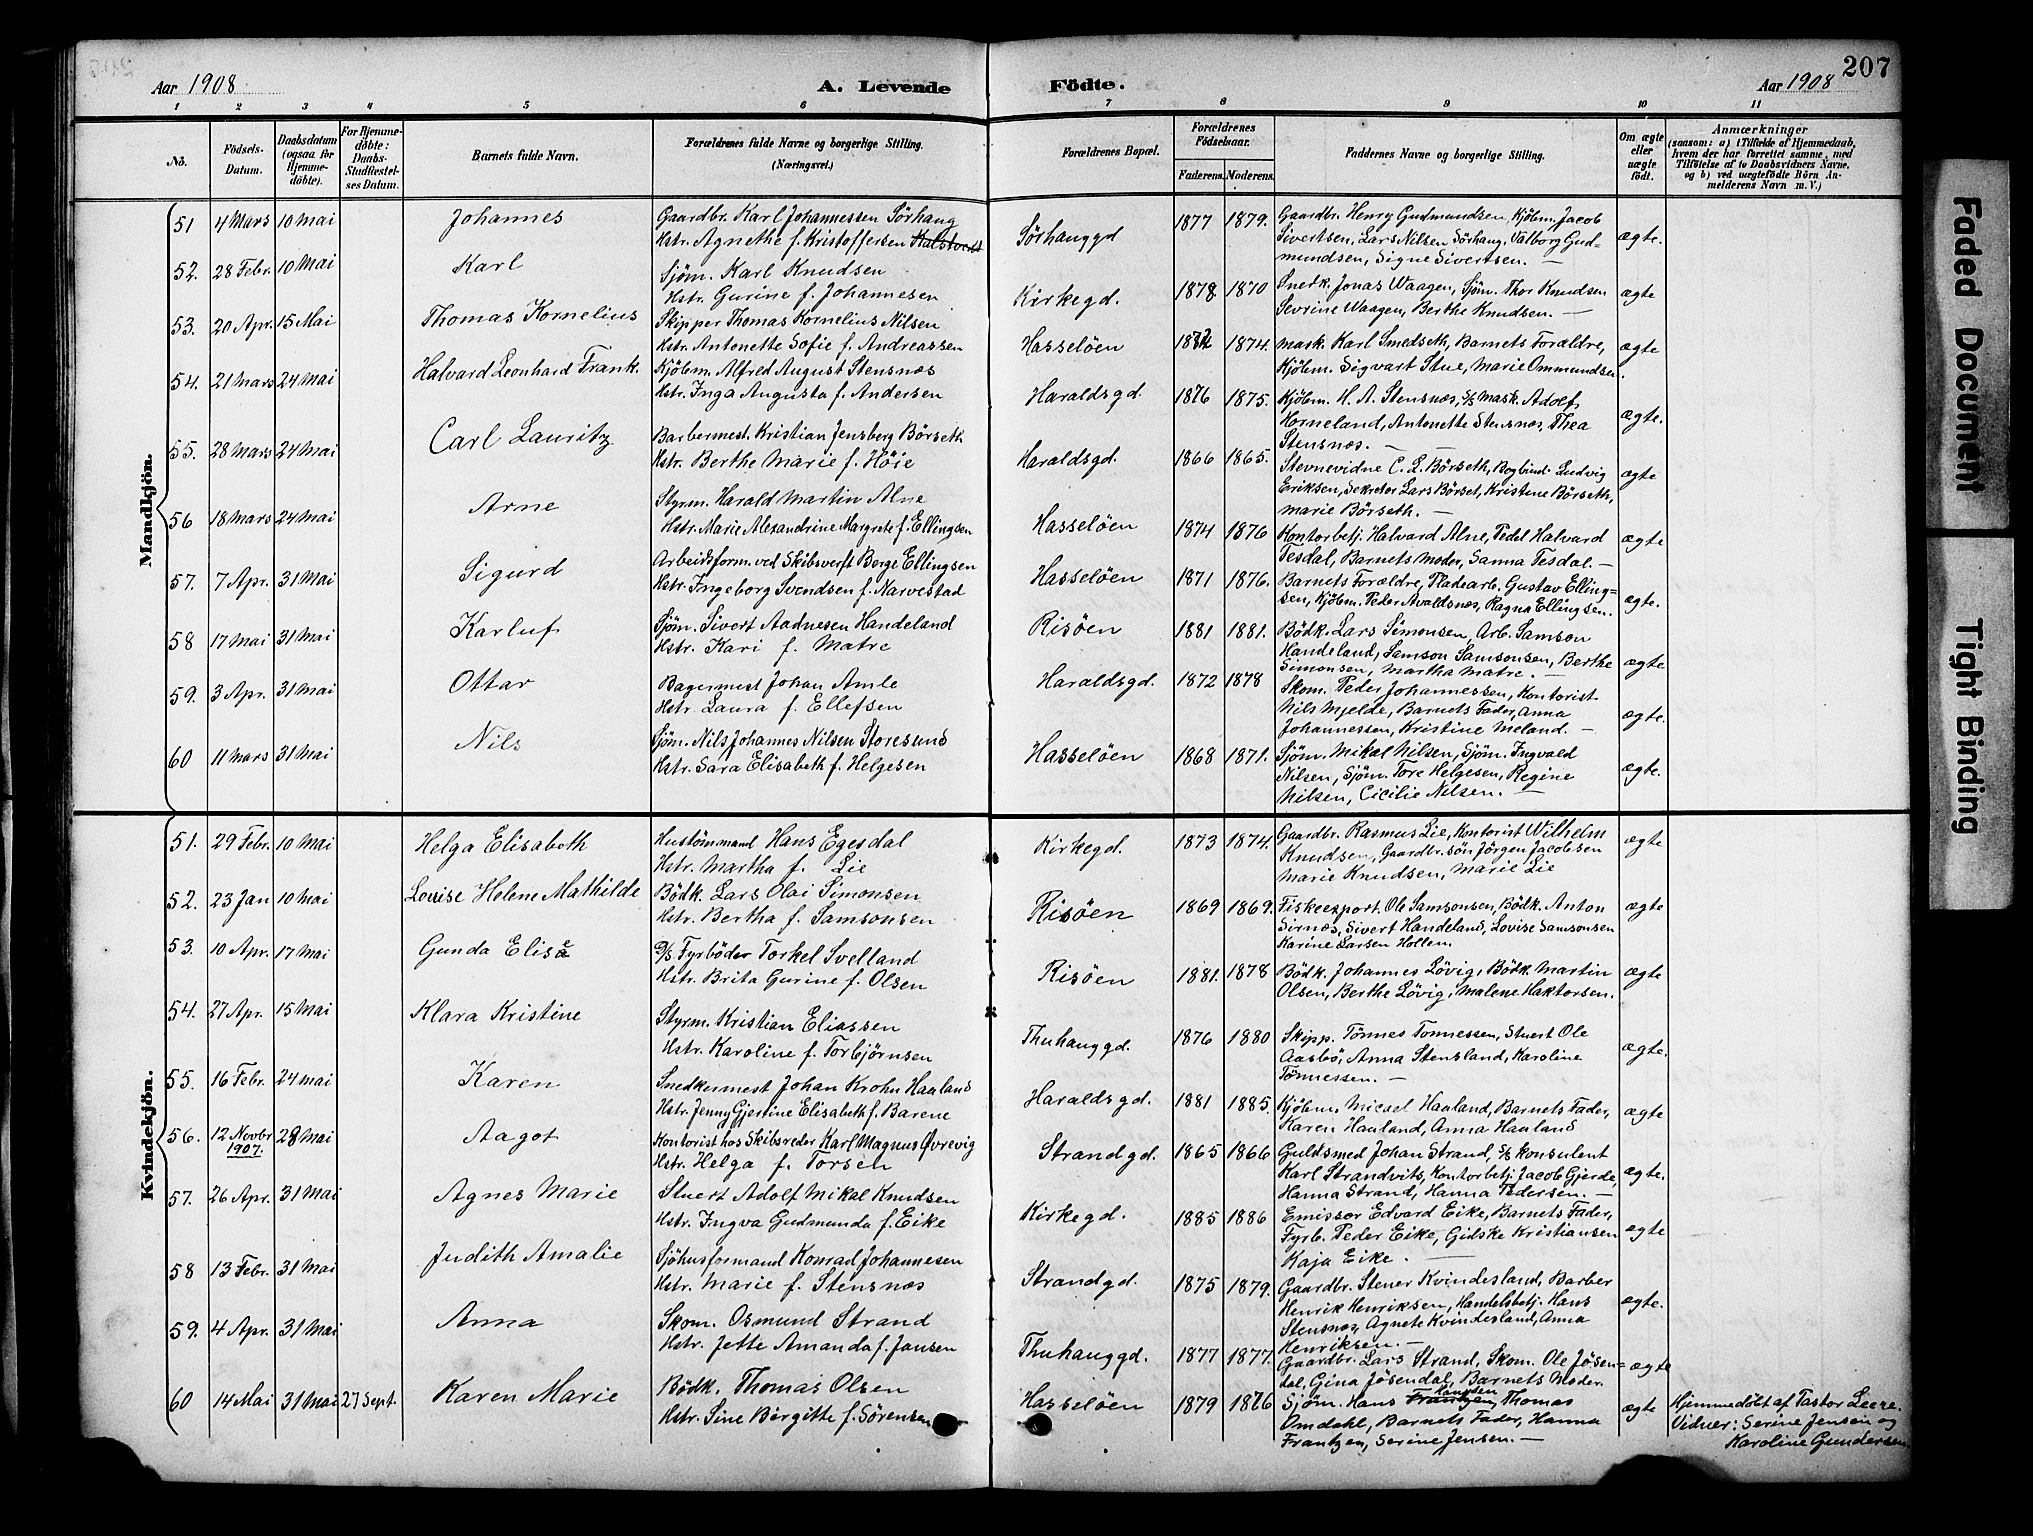 207
Aar 1908 A. Levende Födte. Aar 1908
1 2 3 4 5 6 7 8 9 10 11
No. Födsels-Datum. Daabsdatum (ogsaa for Hjemme-döbte). For Hjemme-döbte: Daabs-Stadfæstel-ses Datum. Barnets fulde Navn. Forældrenes fulde Navne og borgerlige Stilling. (Næringsvei.) Forældrenes Bopæl. Forældrenes Födselsaar. Faderens. Moderens. Faddernes Navne og borgerlige Stilling. Om ægte eller uægte födt. Anmærkninger (saasom: a) i Tilfælde af Hjemmedaab, hvem der har forrettet samme, med Tilföielse af to Daabsvidners Navne, og b) ved uægtefödte Börn An-melderens Navn m. V.)
Mandkjön.
51 4 Mars 10 Mai Johannes Gaardbr. Karl Johannessen Sørhaug
Hstr. Agnethe f. Kristoffersen Sørhauggd 1877 1879. Gaardbr. Henry Gudmundsen, Kjøbm. Jacob
Sivertsen, Lars Nilsen Sørhaug, Valborg Gud-
mundsen, Signe Sivertsen. — ægte.
52. 28 Febr. 10 Mai Karl Sjøm. Karl Knudsen
Hstr. Gurine f. Johannesen Kirkegd. 1878 1870 Snedk. Jonas Waagen, Sjøm. Thor Knudsen
Sevrine Waagen, Berthe Knudsen. — ægte
53. 20 Apr. 15 Mai Thomas Kornelius Skipper Thomas Kornelius Nilsen
Hstr. Antonette Sofie f. Andreassen Hasseløen 1874. Mask. Karl Smedseth, Barnets Forældre,
Kjøbm. Sigvart Stue, Marie Ommundsen. ægte
54. 21 Mars 24 Mai Halvard Leonhard Frank. Kjøbm. Alfred August Stensnæs
Hstr. Inga Augusta f. Andersen Haraldsgd. 1876 1875. Kjøbm. H. A. Stensnæs, D/S Mask. Adolf
Horneland, Antonette Stensnæs, Thea
Stensnæs. — ægte.
55. 28 Mars 24 Mai Carl Lauritz Barbermest. Kristian Jensberg Børseth
Hstr. Berthe Marie f. Høie Haraldsgd. 1866 1865. Stevnevidne C. L. Børseth, Bogbind. Ludvig
Eriksen, Sekretær Lars Børset, Kristine Børseth,
Marie Børseth. — ægte
56 18 Mars 24 Mai Arne Styrm. Harald Martin Alne
Hstr. Marie Alexandrine Margrete f. Ellingsen Hasseløen 1874 1876 Kontorbetj. Halvard Alne, Pedel Halvard
Tesdal, Barnets Moder, Sanna Tesdal. — ægte
57. 7 Apr. 31 Mai Sigurd Arbeidsform. ved Skibsverft Berge Ellingsen
Hstr. Ingeborg Svendsen f. Narvestad Hasseløen 1871 1876. Barnets Forældre, Pladearb. Gustav Elling-
sen, Kjøbm. Peder Avaldsnæs, Ragna Ellingsen. ægte.
58 17 Mai 31 Mai Karluf Sjøm. Sivert Aadnesen Handeland
Hstr. Kari f. Matre Risøen 1881 1881. Bødk. Lars Simonsen, Arb. Samson
Handeland, Samson Samsonsen, Berthe
Simonsen, Martha Matre. — ægte
59. 3 Apr. 31 Mai Ottar Bagermest Johan Amle
Hstr. Laura f. Ellefsen Haraldsgd. 1872 1878 Skom. Peder Johannessen, Kontorist
Nils Mjelde, Barnets Fader, Anna
Johannessen, Kristine Meland. — ægte.
60 11 Mars 31 Mai Nils Sjøm. Nils Johannes Nilsen Storesund
Hstr. Sara Elisabeth f. Helgesen Hasseløen 1868 1871. Sjøm. Mikal Nilsen, Sjøm. Ingvald
Nilsen, Sjøm. Tore Helgesen, Regine
Nilsen, Cicilie Nilsen. — ægte.
Kvindekjön.
51. 29 Febr. 10 Mai Helga Elisabeth Hustømmand Hans Egesdal
Hstr. Martha f. Lie Kirkegd. 1873 1874. Gaardbr. Rasmus Lie, Kontorist Wilhelm
Knudsen, Gaardbr.søn Jørgen Jacobsen
Marie Knudsen, Marie Lie ægte
52. 23 Jan 10 Mai Louise Helene Mathilde Bødk. Lars Olai Simonsen
Hstr. Bertha f. Samsonsen Risøen 1869 1869. Fiskeexport. Ole Samsonsen, Bødk. Anton
Sirnæs, Sivert Handeland, Lovise Samsonsen
Karine Larsen Hollen. ægte
53. 10 Apr. 17 Mai Gunda Elise D/S Fyrbøder Torkel Svelland
Hstr. Brita Gurine f. Olsen Risøen 1881. 1878 Bødk. Johannes Løvig, Bødk. Martin
Olsen, Berthe Løvig, Malene Haktorsen. ægte
54. 27 Apr. 15 Mai Klara Kristine Styrm. Kristian Eliassen
Hstr. Karoline f. Torbjørnsen Thuhauggd. 1876 1880 Skipp. Tønnes Tønnessen, Stuert Ole
Aasbø, Anna Stensland, Karoline
Tønnessen. — ægte.
55. 16 Febr. 24 Mai Karen Snedkermest Johan Krohn Haaland
Hstr. Jenny Gjertine Elisabeth f. Barene Haraldsgd. 1881 1885. Kjøbm. Micael Haaland, Barnets Fader,
Karen Haaland, Anna Haaland ægte
56. 12 Novbr 1907. 28 Mai Aagot Kontorist hos Skibsreder Karl Magnus Øvrevig
Hstr. Helga f. Torsen Strandgd. 1865 1866 Guldsmed Johan Strand, v/k konsulent
Karl Strandvits, Kontorbetj. Jacob Gjerde,
Hanna Strand, Hanna Pedersen. — ægte.
57. 26 Apr. 31 Mai Agnes Marie Stuert Adolf Mikal Knudsen
Hstr. Ingva Gudmunda f. Eike Kirkegd. 1885 1886 Emissær Edvard Eike, Barnets Fader,
Fyrb. Peder Eike, Gidske Kristiansen
Kaja Eike. — ægte
58 13 Febr. 31 Mai Judith Amalie Sjøhusformand Konrad Johannesen
Hstr. Marie f. Stensnæs Strandgd. 1875 1879. Gaardbr. Stener Kvindesland, Barber
Henrik Henriksen, Handelsbetj. Hans
Stensnæs, Agnete Kvindesland, Anna
Henriksen. — ægte.
59. 4 Apr. 31 Mai Anna Skom. Osmund Strand
Hstr. Jette Amanda f. Jansen Thuhauggd. 1877 1877. Gaardbr. Lars Strand, Skom. Ole Jøsen-
dal, Gina Jøsendal, Barnets Moder. ægte
60 14 Mai 31 Mai 27 Sept. Karen Marie Bødk. Thomas Olsen
Hstr. Sine Birgitte f. Sørensen Hasseløen 1879 1876 Sjøm. Hans Frantzen, Thomas
Omdahl, Barnets Fader, Hanna
Frantzen, Serine Jensen. — ægte Hjemmedøbt af Pastor Leere.
Vidner: Serine Jensen og
Karoline Gundersen.
Faded Document
Tight Binding